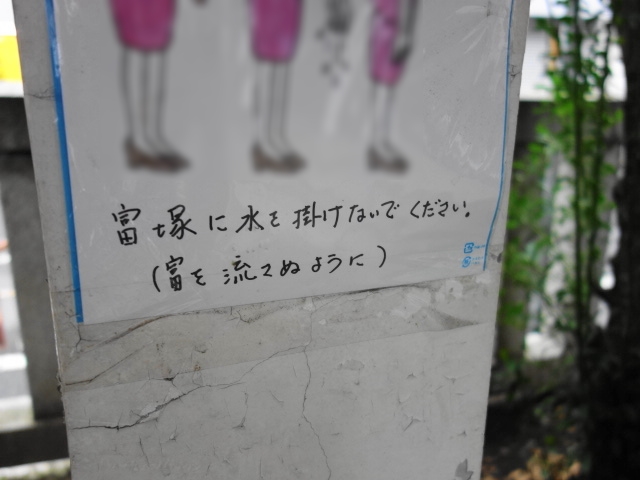 富塚に水を掛けないでください。
(富を流さぬように)